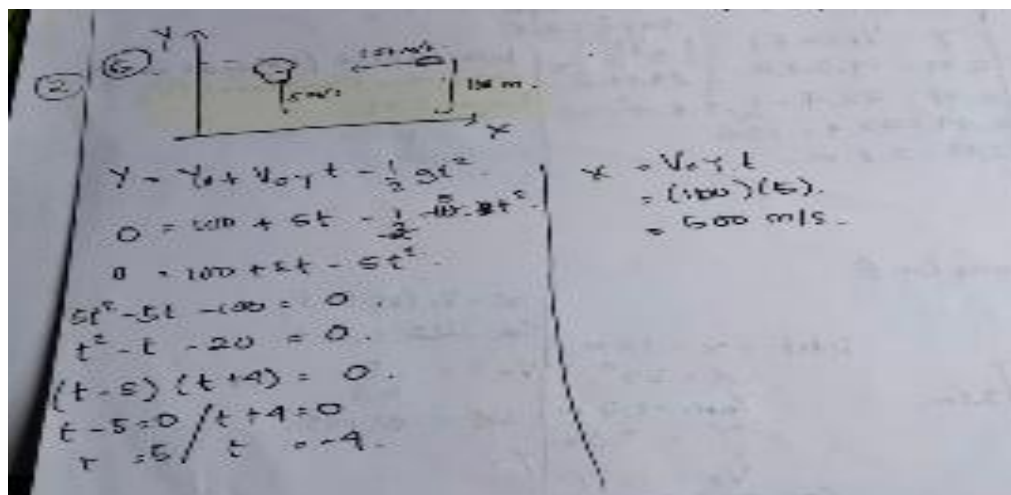 2
6
Y
5 m/s
X
Y = Y₀ + V₀yt - ½ gt²
0 = 100 + 5t - ½
0 = 100 + 5t - 5t²
5t² - 5t - 100 = 0.
t² - t - 20 = 0.
(t - 5) (t + 4) = 0.
t - 5 = 0 / t + 4 = 0
t = 5 / t = -4.
X = V₀y t
= (100)(5).
= 500 m/s.